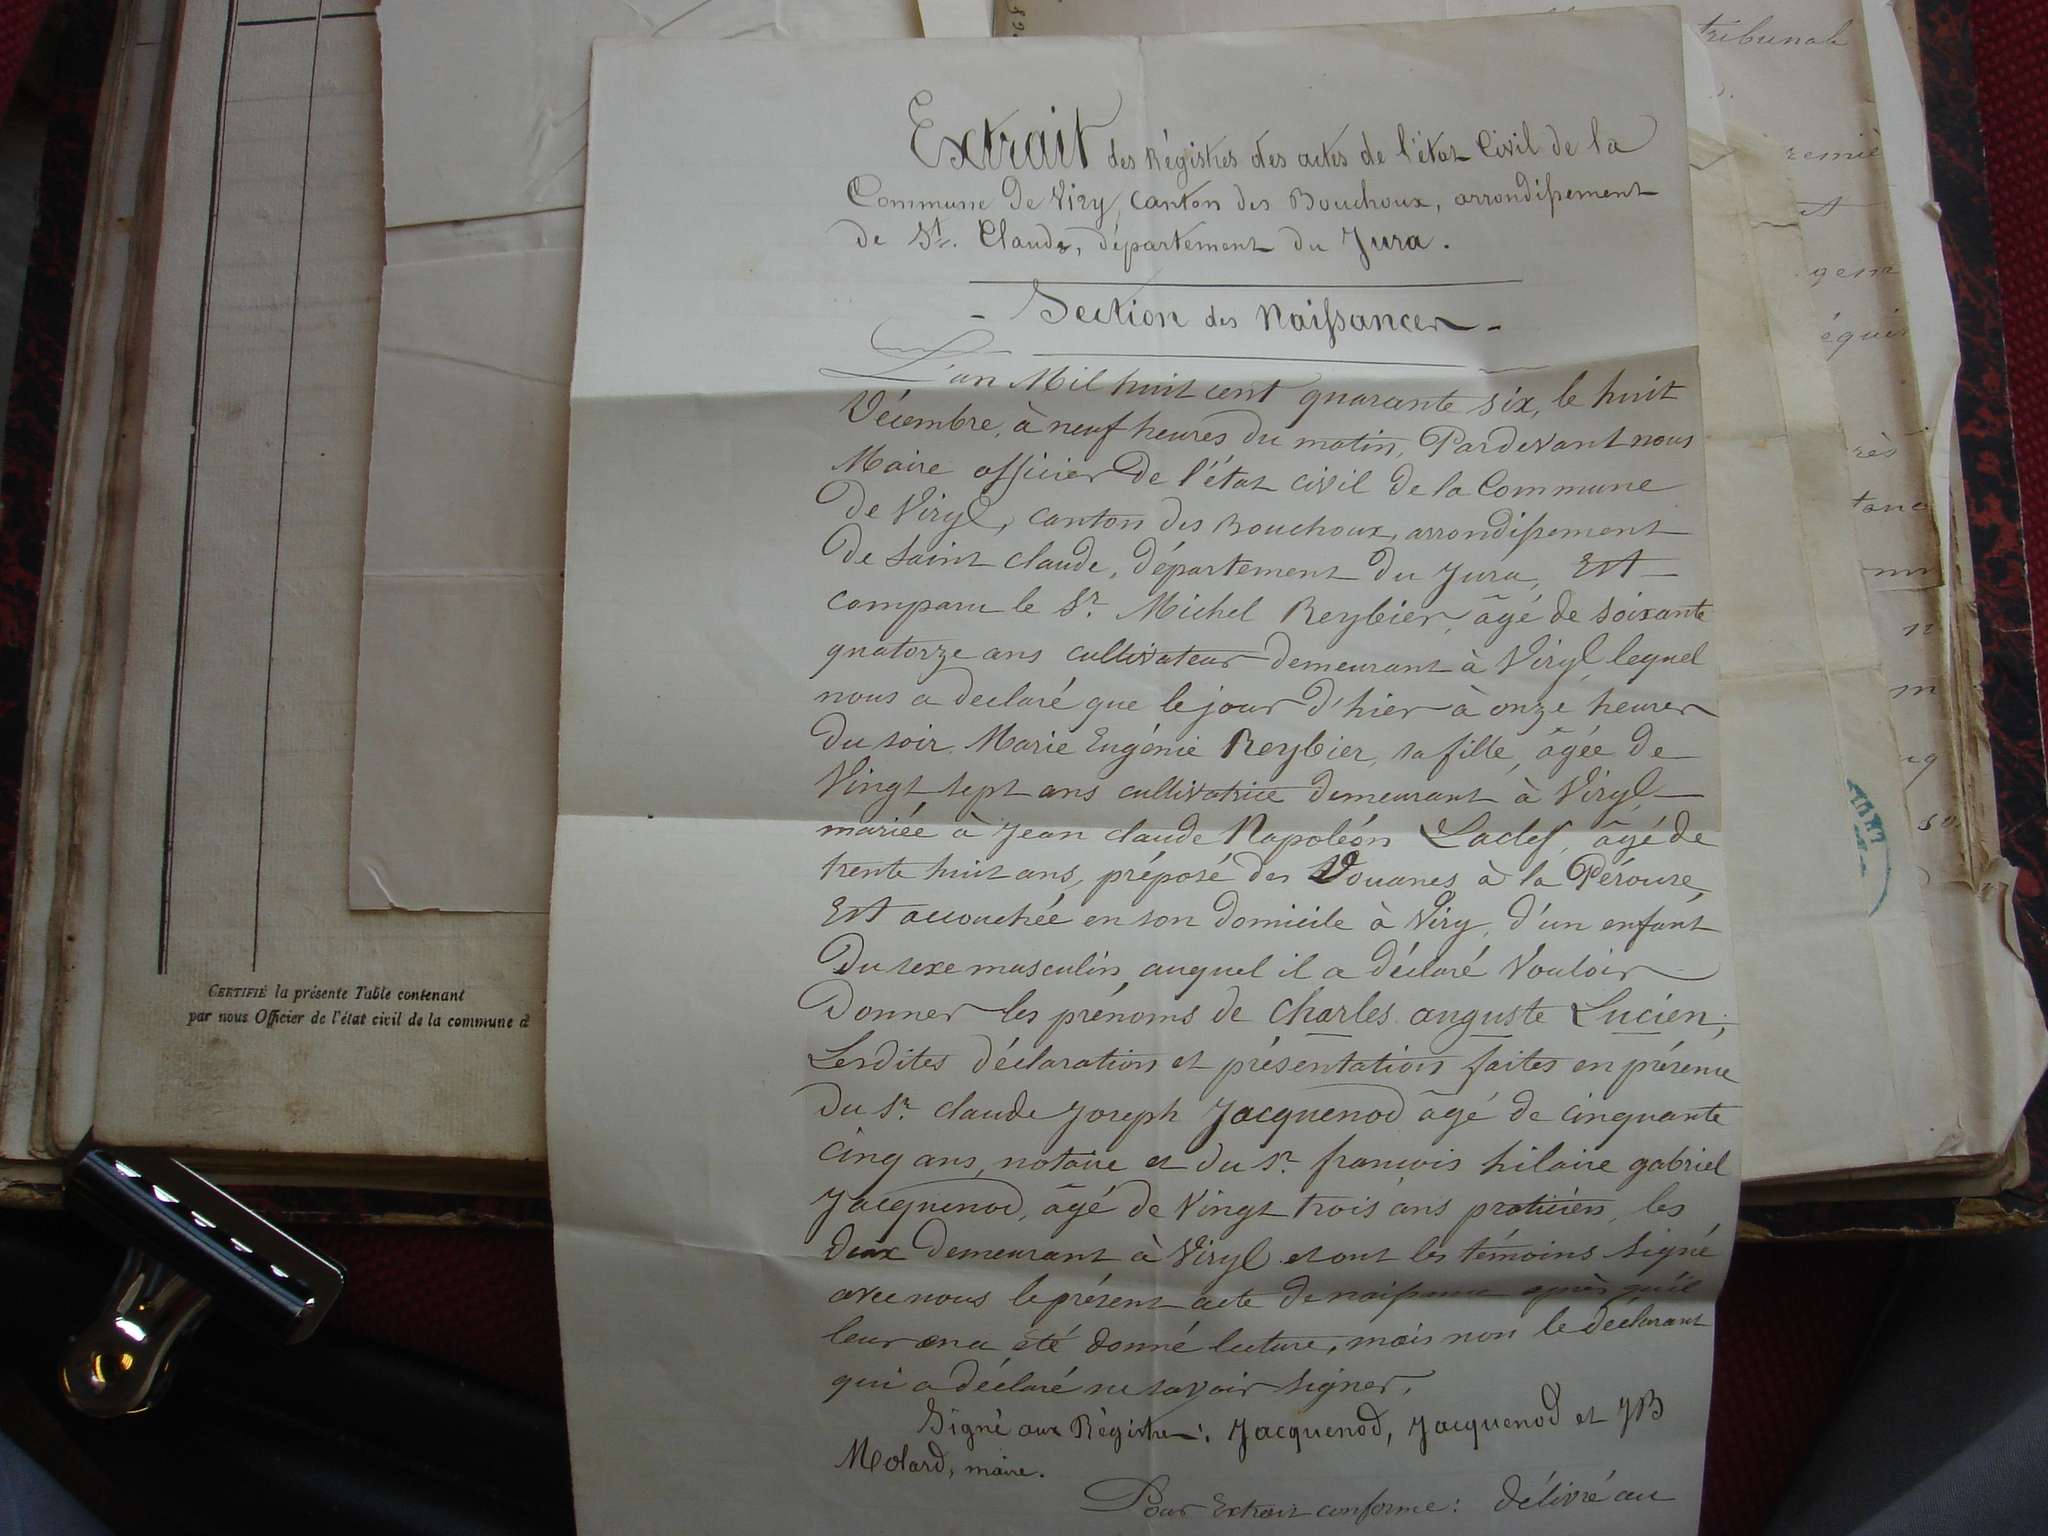 Extrait des Régistres des actes de l'état Civil de la
Commune de Viry, canton des Bouchoux, arrondissement
de St. Claude, département du Jura.
- Section des Naissances -
L'an Mil huit cent quarante six, le huit
Décembre, à neuf heures du matin, Pardevant nous
Maire officier de l'état civil de la Commune
de Viry, canton des Bouchoux, arrondissement
de saint claude, département du Jura, Est
comparu le Sr. Michel Reybier, âgé de soixante
quatorze ans cultivateur demeurant à Viry, lequel
nous a declaré que le jour d'hier à onze heures
du soir, Marie Eugénie Reybier, sa fille, âgée de
Vingt sept ans cultivatrice demeurant à Viry
mariée à Jean claude Napoléon Laclef, âgé de
trente huit ans, préposé des Douanes à la Pérouse,
Est accouchée en son domicile à Viry, d'un enfant
Du sexe masculin, auquel il a déclaré Vouloir
Donner les prénoms de Charles auguste Lucien;
Lesdites déclaration et présentation faites en présence
du Sr. claude Joseph Jacquenod âgé de cinquante
cinq ans, notaire et du Sr. francois hilaire gabriel
Jacquenod, âgé de Vingt trois ans praticien, les
deux demeurant à Viry et ont les témoins signé
avec nous le présent acte de naissance après qu'il
leur en a été donné lecture, mais non le déclarant
qui a déclaré ne savoir signer.
Signé aux Régistres: Jacquenod, Jacquenod et JB
Molard, maire.
Pour Extrait conforme: délivré au
CERTIFIÉ la présente Table contenant
par nous Officier de l'état civil de la commune d
tribunal